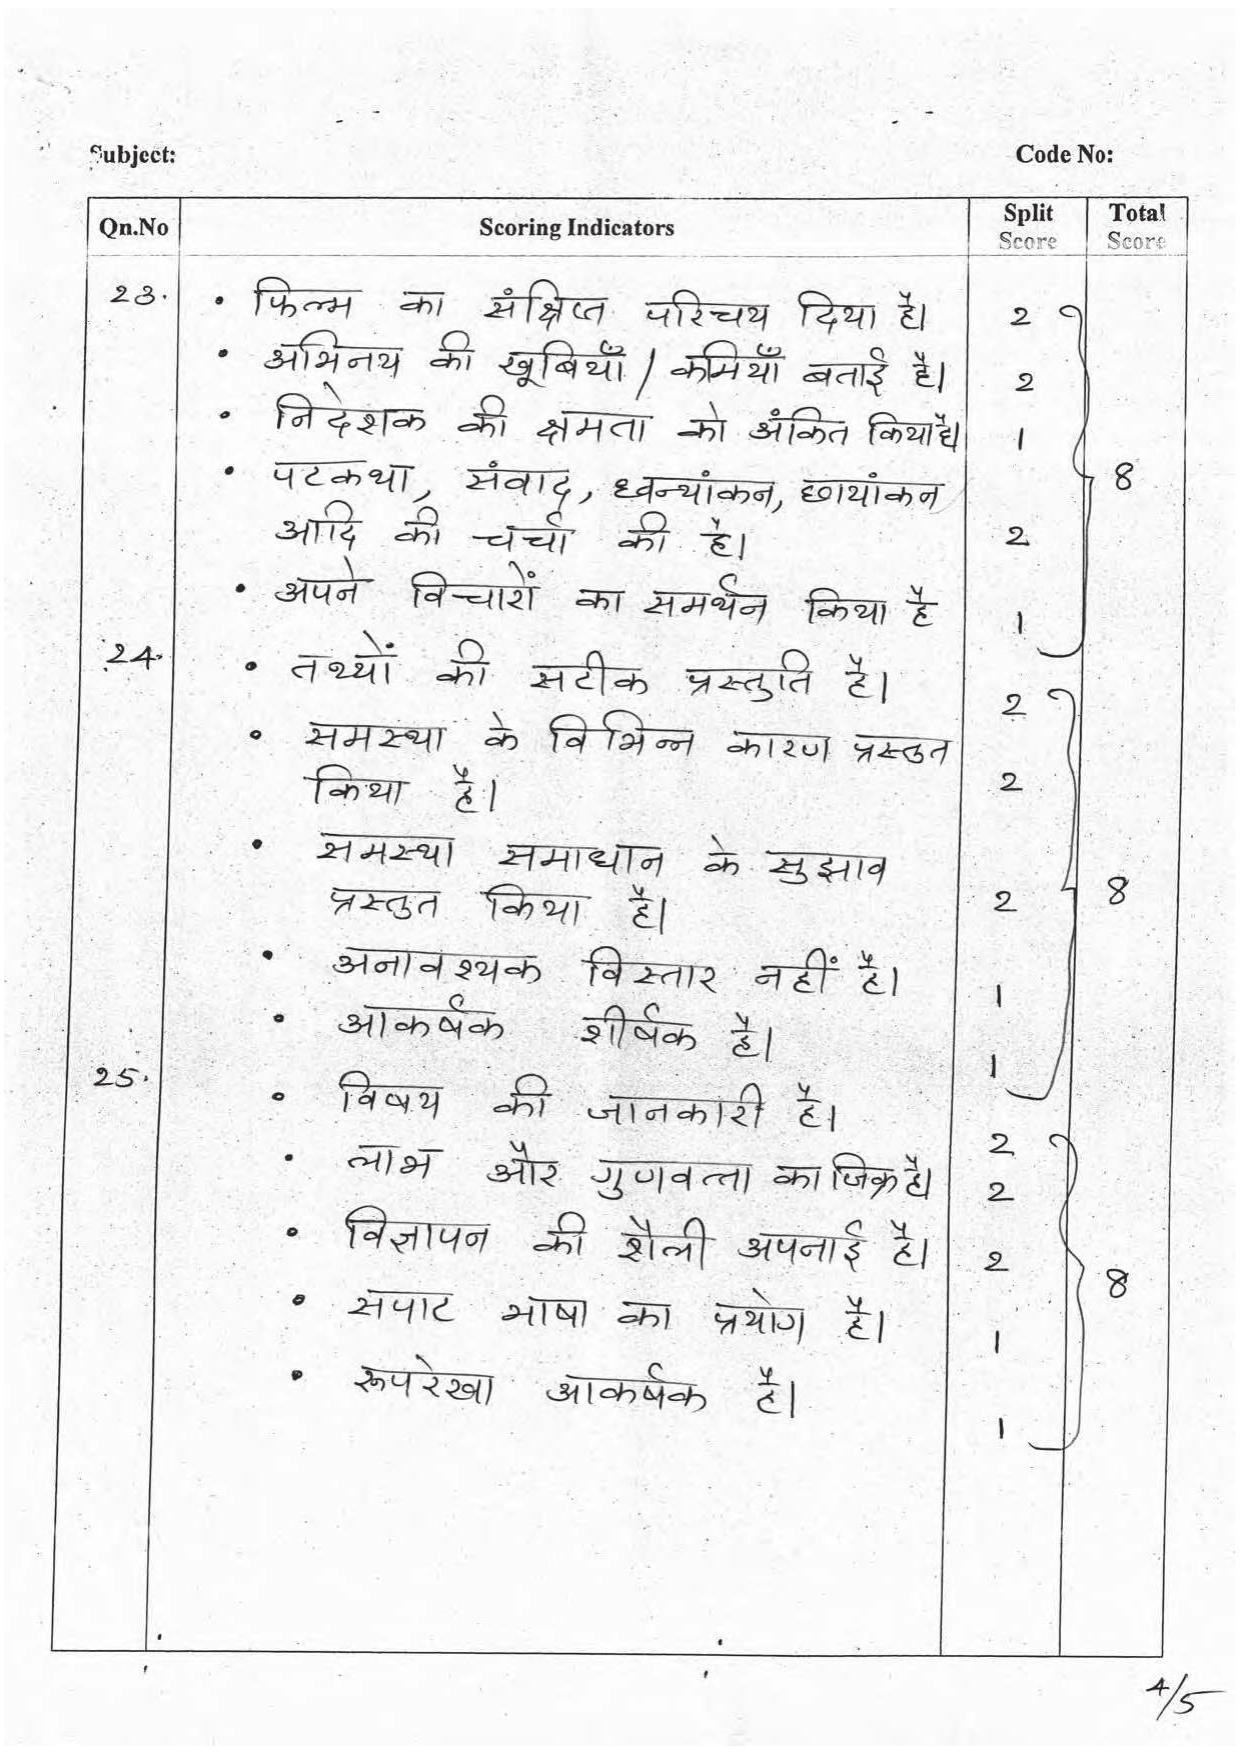 Subject: Code No:
Qn.No Scoring Indicators Split Score Total Score
23. • फिल्म का संक्षिप्त परिचय दिया है। 2
• अभिनय की खूबियाँ / कमियाँ बताई है। 2
• निदेशक की क्षमता को अंकित किया है। 1
• पटकथा, संवाद, ध्वन्यांकन, छायांकन 8
आदि की चर्चा की है। 2
• अपने विचारों का समर्थन किया है 1
24. • तथ्यों की सटीक प्रस्तुति है। 2
• समस्था के विभिन्न कारण प्रस्तुत
किया है। 2
• समस्था समाधान के सुझाव
प्रस्तुत किया है। 2 8
• अनावश्यक विस्तार नहीं है। 1
• आकर्षक शीर्षक है। 1
25. • विषय की जानकारी है। 2
• लाभ और गुणवत्ता का जिक्र है। 2
• विज्ञापन की शैली अपनाई है। 2 8
• सपाट भाषा का प्रयोग है। 1
• रूपरेखा आकर्षक है। 1
4/5